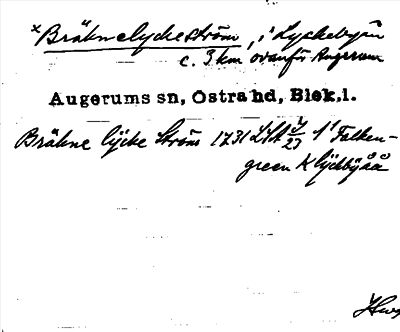 *Brähnelyckeström, i Lyckebyån
c. 3 km ovanför Augerum
Augerums sn, Östra hd, Blek.l.
Bräkne lÿcke Ström 1731 Falken-
green K lÿckbÿåå